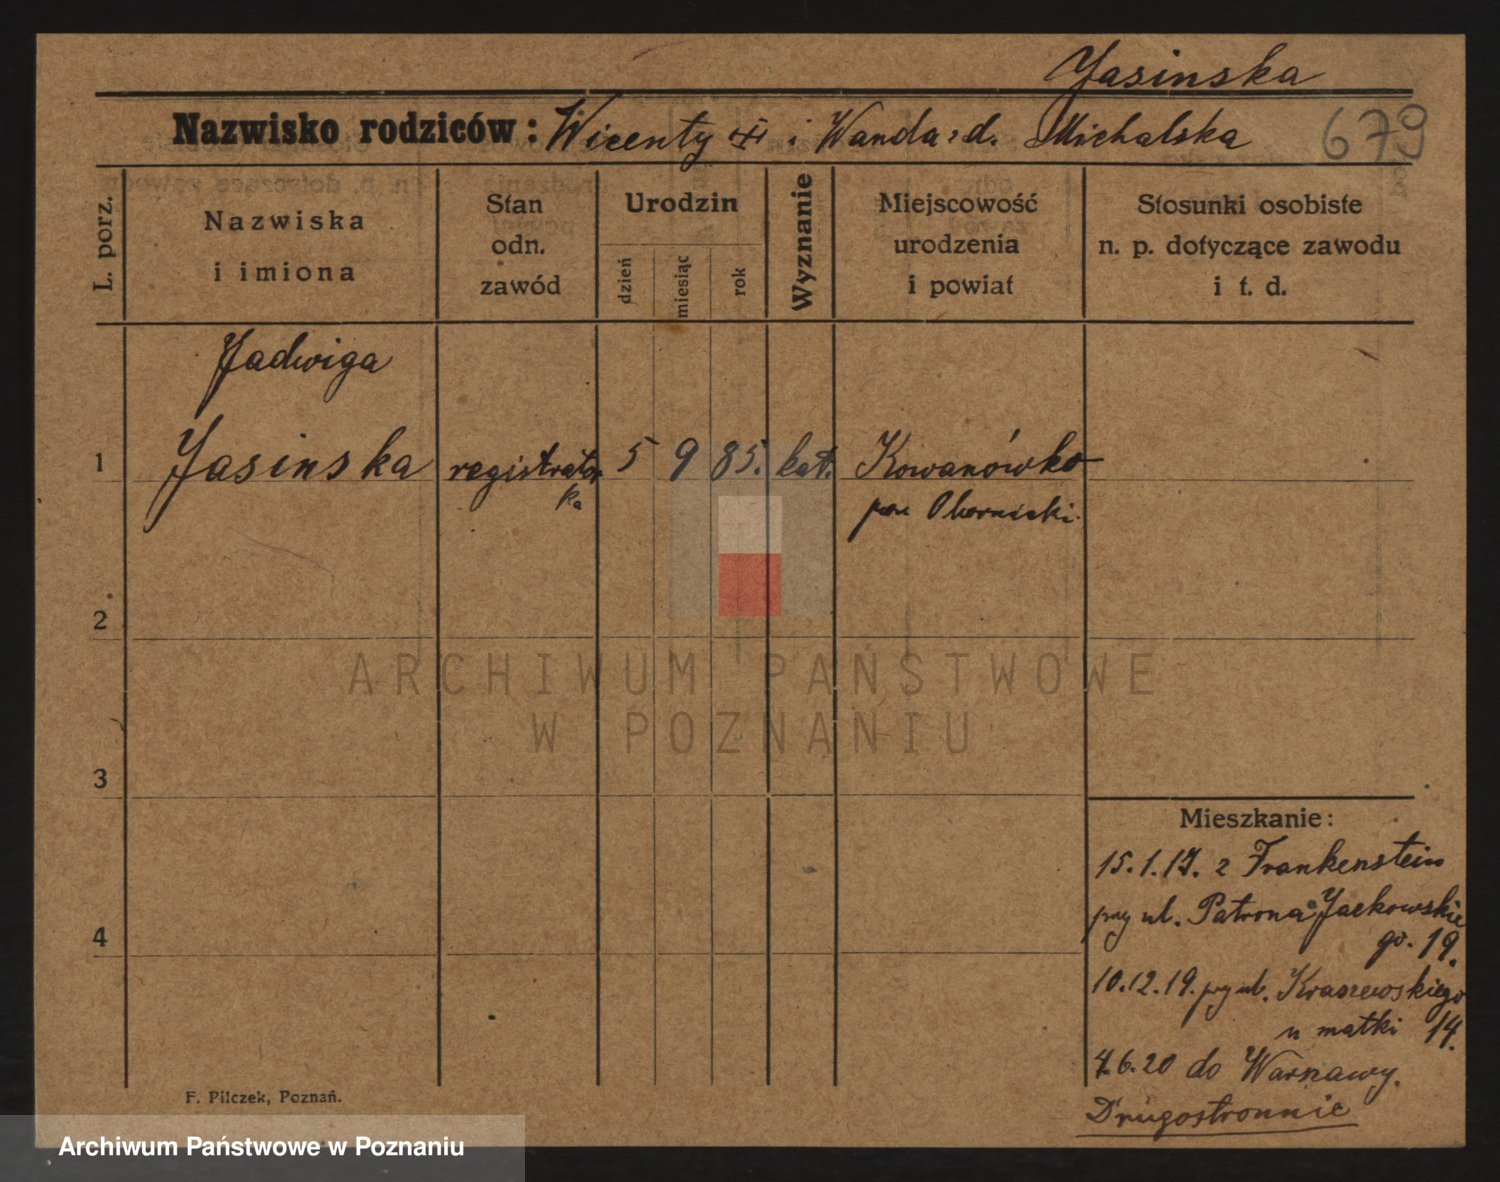 Jasinska
Nazwisko rodziców: Wicenty i Wanda z d. Michalska 679
L. porz.
Nazwiska
i imiona
Stan
odn.
zawód
Urodzin
dzień
miesiąc
rok
Wyznanie
Miejscowość
urodzenia
i powiat
Stosunki osobiste
n. p. dotyczące zawodu
i t. d.
Jadwiga
1 Jasinska registrator 5 9 85. kat. Kowanówko
ka pow Obornicki
2
3
4
Mieszkanie:
15.1.17. z Frankenstein
przy ul. Patrona Jackowskie
go. 19.
10.12.19. przy ul. Kraszewskiego
u matki 14.
4.6.20 do Warszawy.
Drugostronnie
F. Pilczek, Poznań.
ARCHIWUM PAŃSTWOWE
W POZNANIU
Archiwum Państwowe w Poznaniu